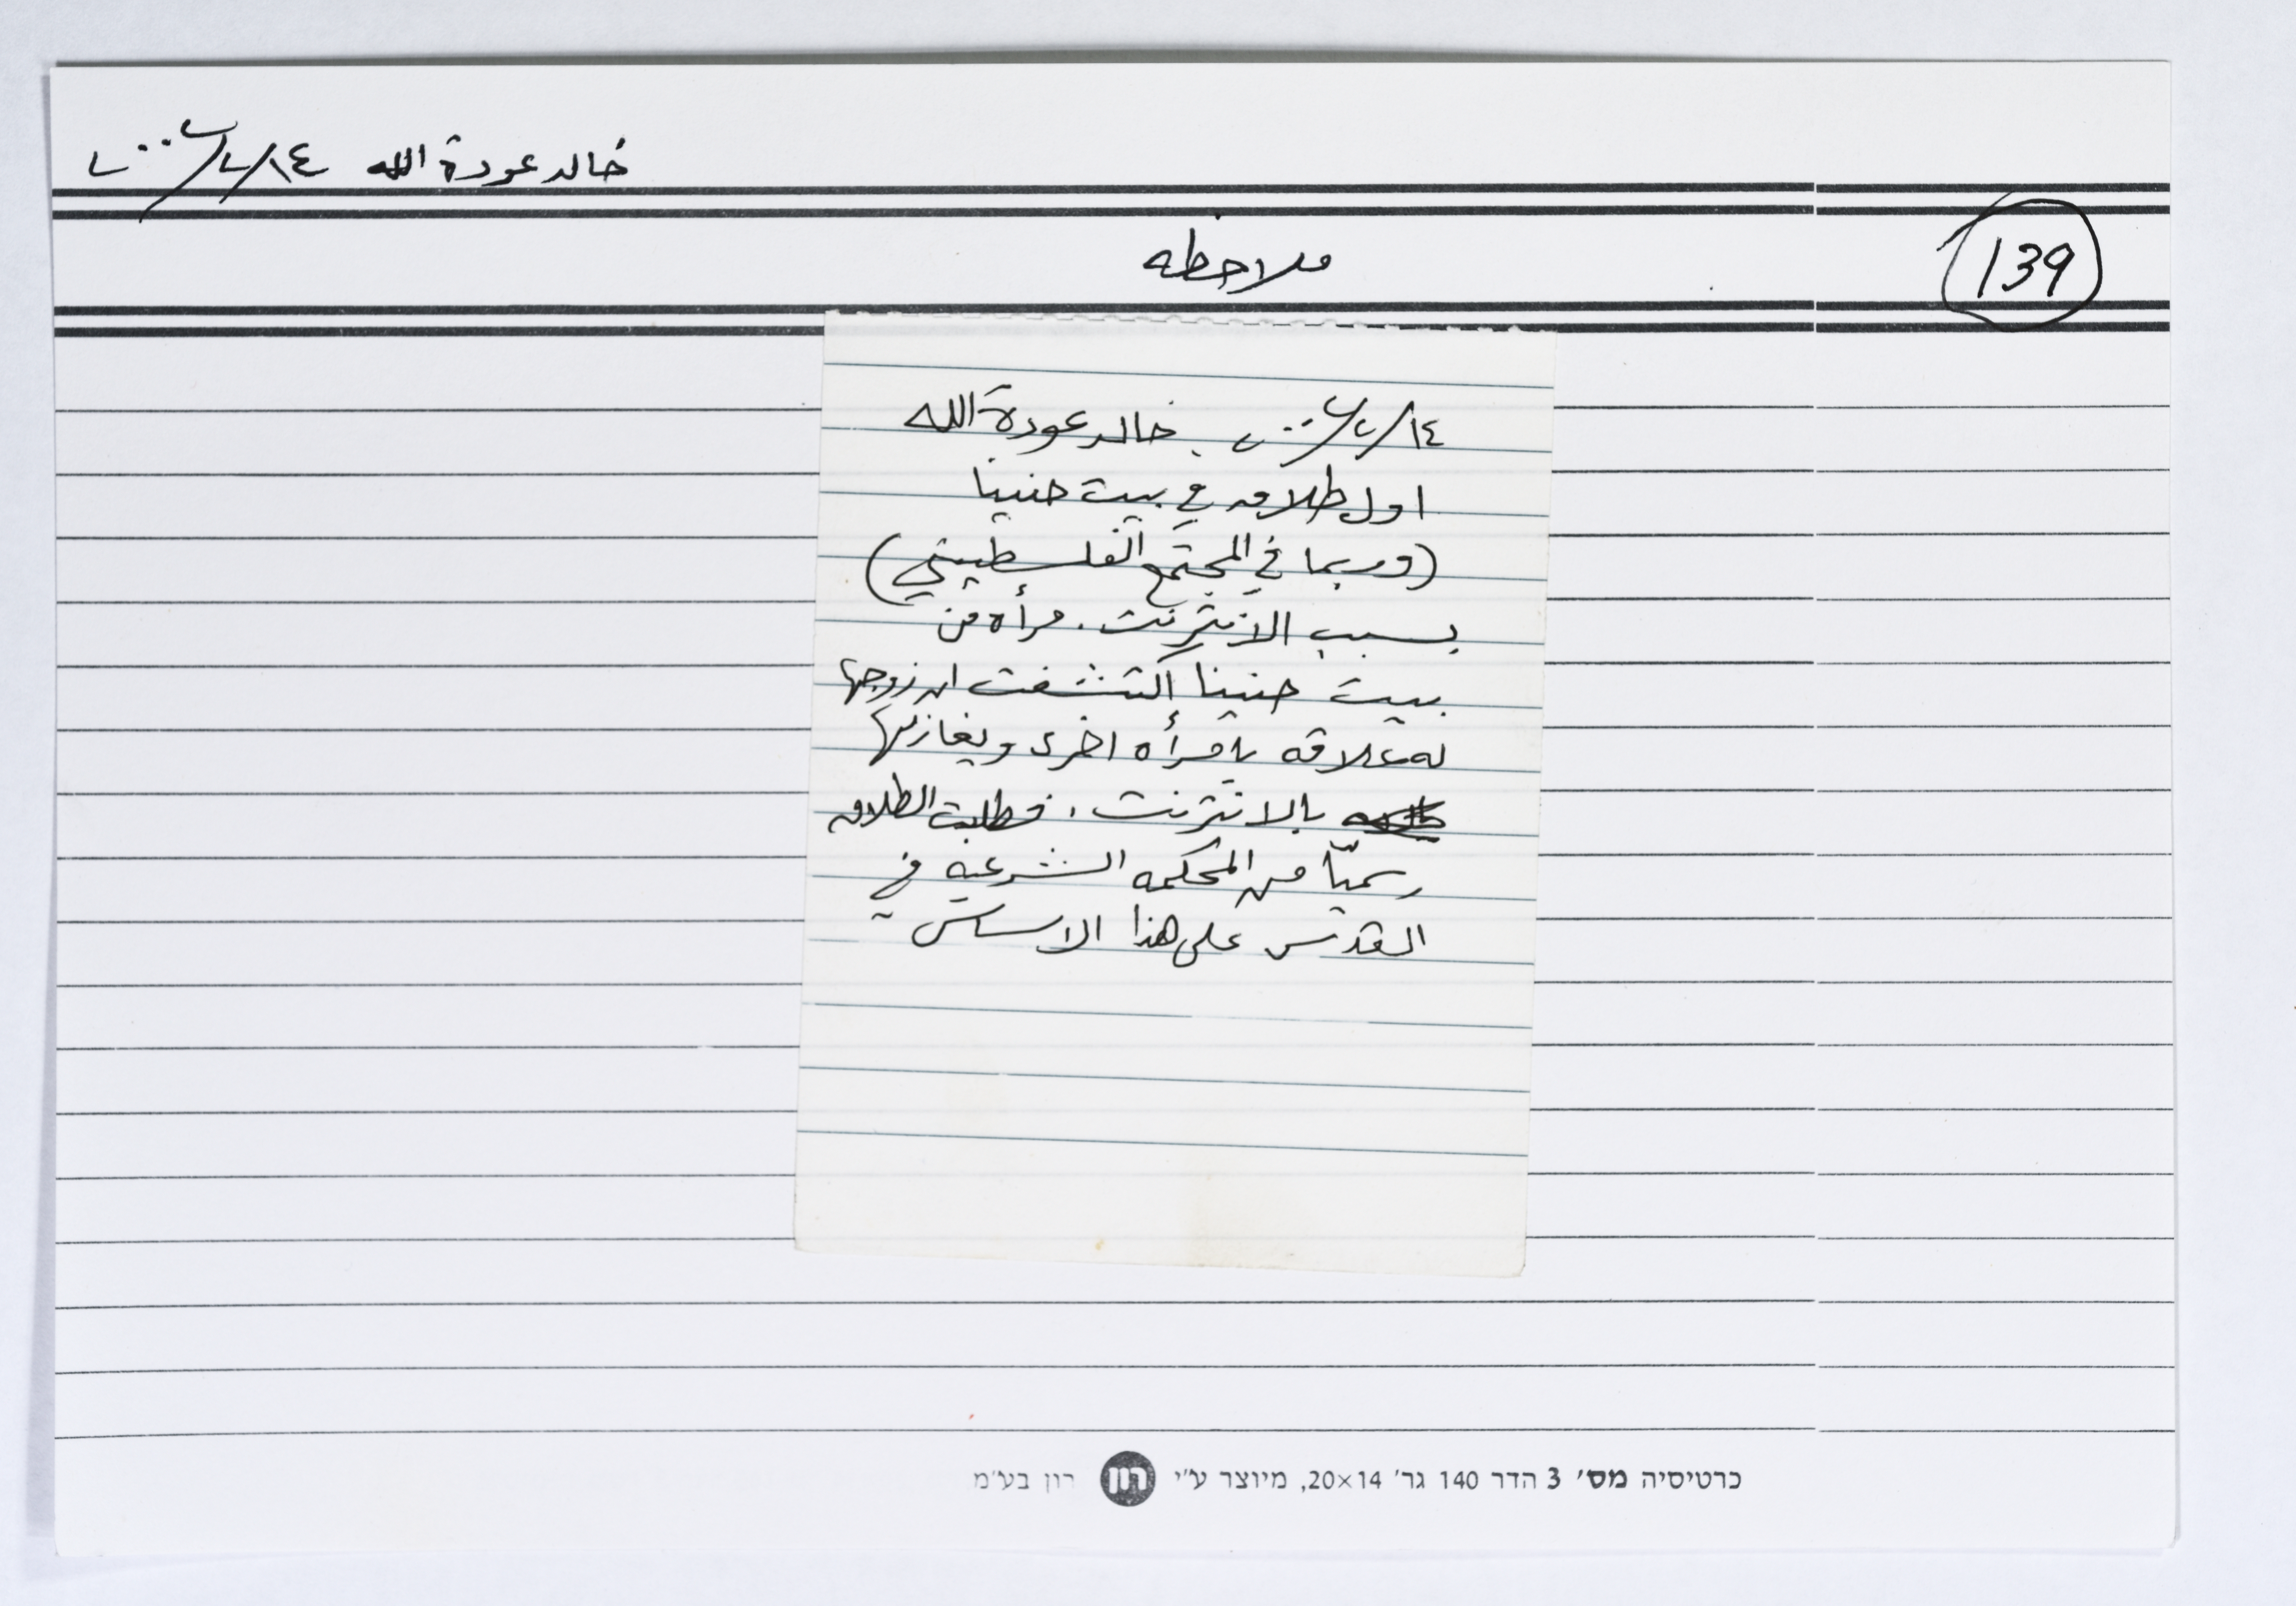 خالد عودة الله ١٤/٢/٢٠٠٢
139
ملاحظه
١٤/٢/٢٠٠٢ خالد عودة الله
اول طلاق في بيت حنينا
(وربما في المجتمع الفلسطيني)
بسبب الانترنت. مرأه من
بيت حنينا اكتشفت ان زوجها
له علاقه بامرأه اخرى ويغازلها
بالانترنت، فطلبت الطلاق
رسميّاً من المحكمه الشرعية في
القدس على هذا الاساس
כרטיסיה מס׳ 3 הדר 140 גר׳ 20×14, מיוצר ע״י רון רון בע״מ